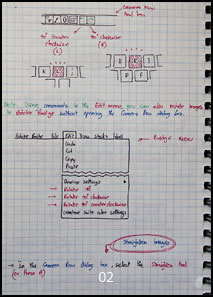 Camera Raw
tool box
90° counter
clockwise
(L)
90° clockwise
(R)
Note: Using commands in the Edit menu, you can also rotate images
in Adobe Bridge without opening the Camera Raw dialog box.
Adobe Bridge File Edit View Stacks Label
Bridge Menu
Undo
Cut
Copy
Paste
Develop settings
Rotate 180°
Rotate 90° clockwise
Rotate 90° counterclockwise
Creative suite color settings
Straighten images
→ In the Camera Raw dialog box, select the Straighten tool
(or Press A)
02